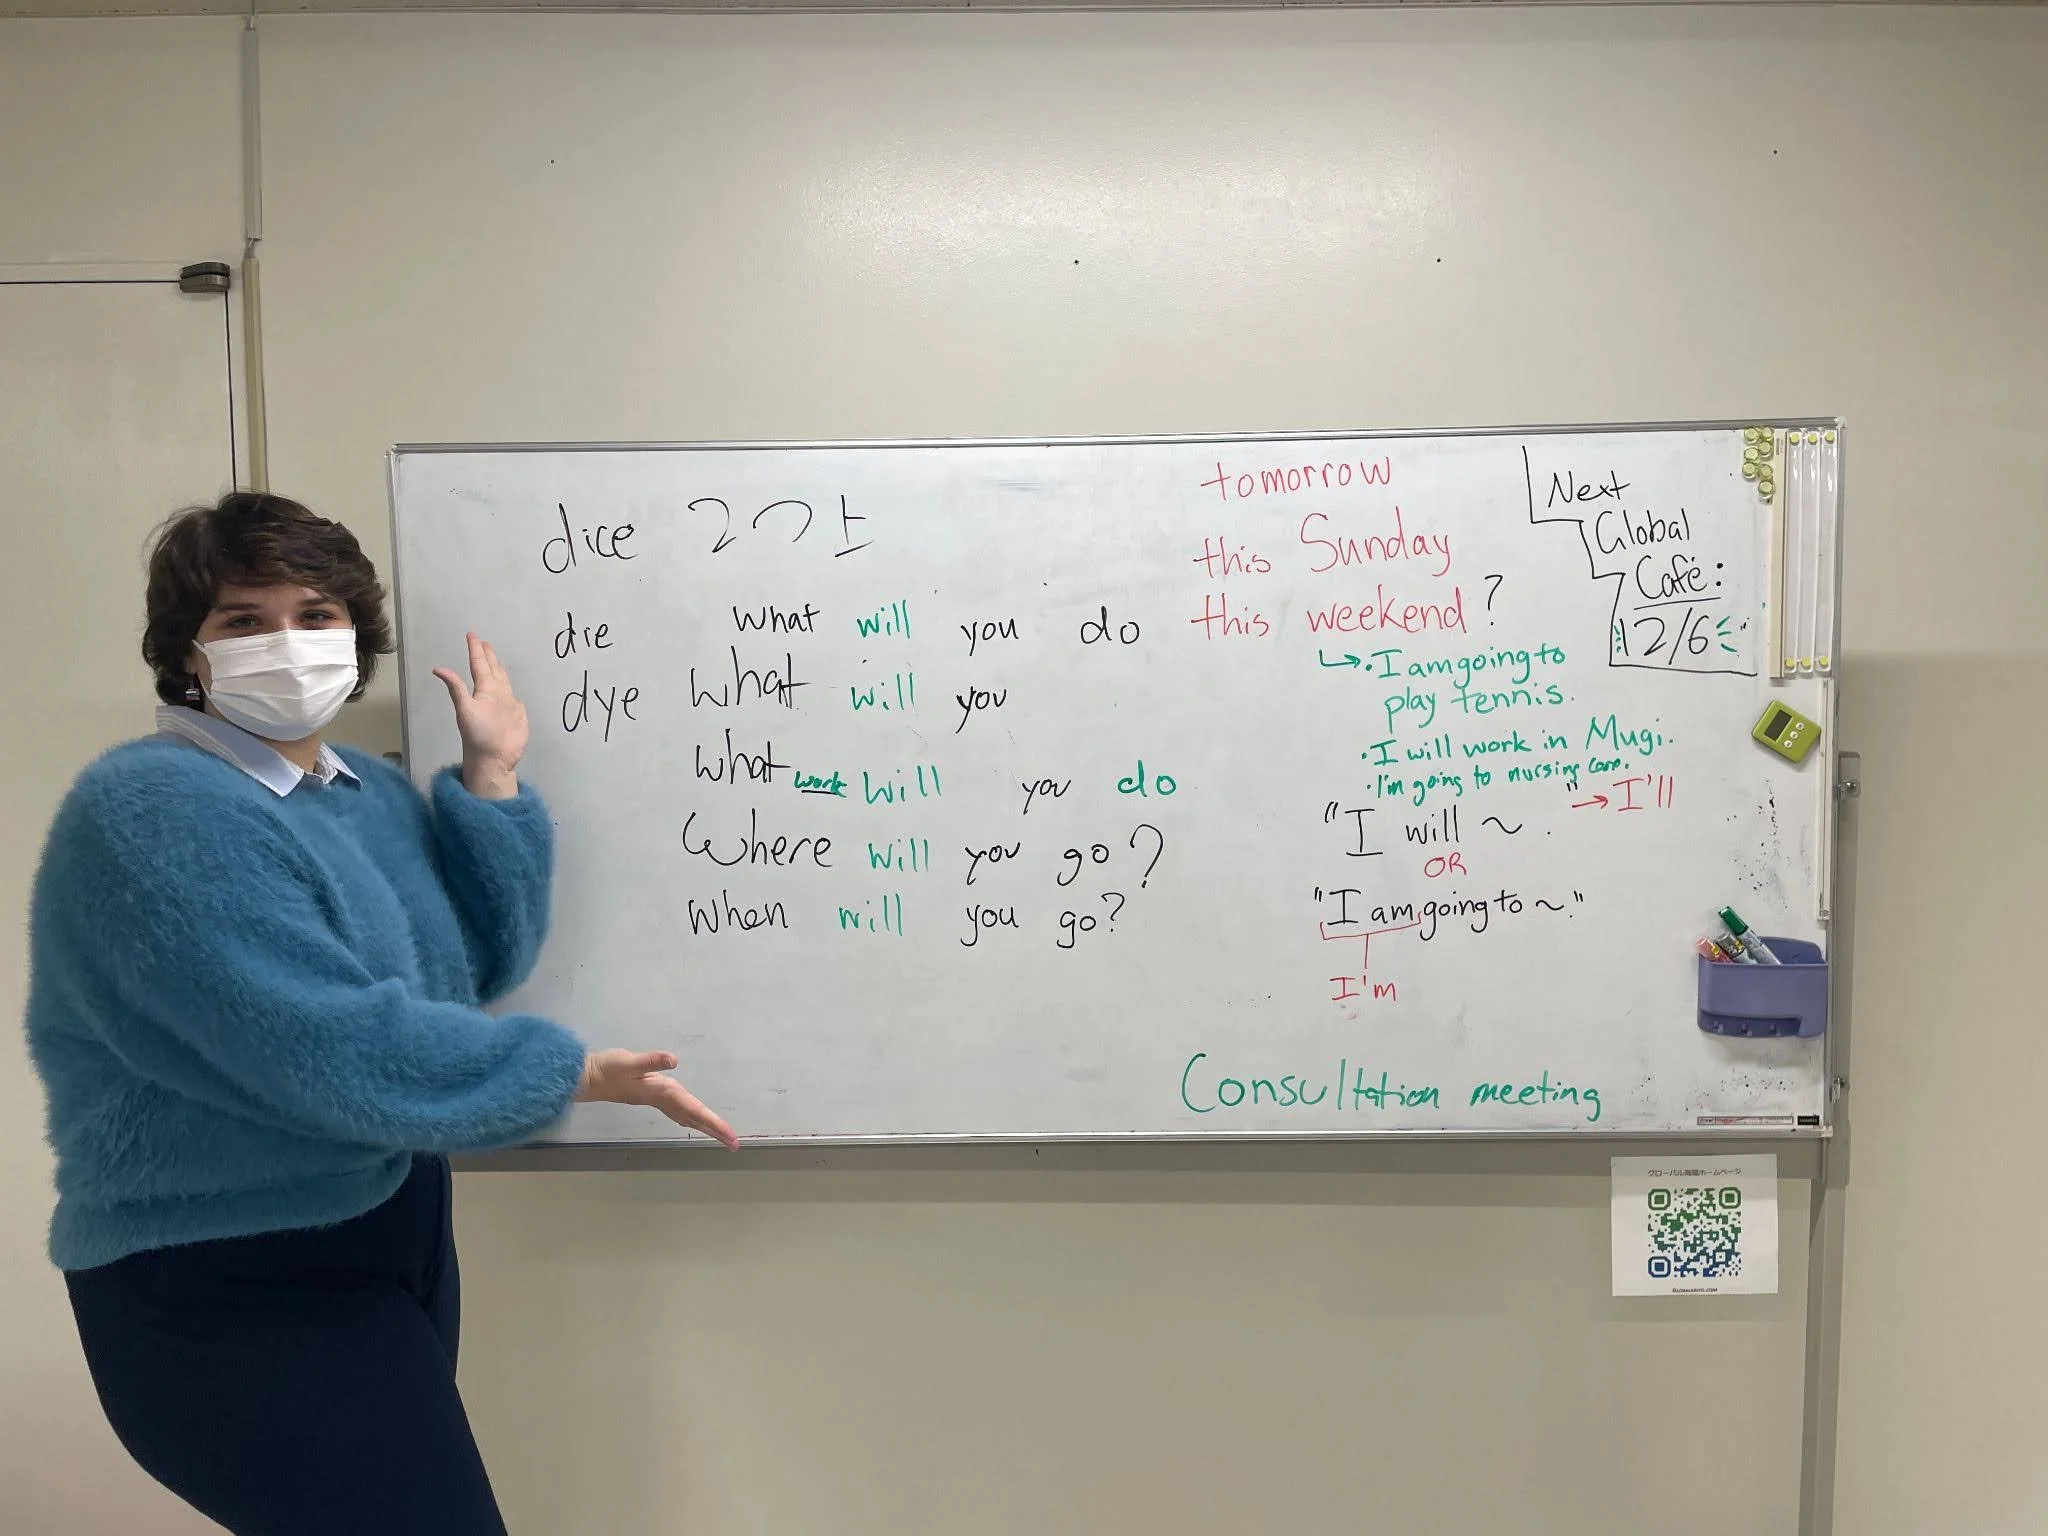 dice 2つ上
die
dye
what will you do
what will you
what work will you do
Where will you go?
When will you go?
tomorrow
this Sunday
this weekend?
↳ · I am going to
play tennis.
· I will work in Mugi.
· I'm going to nursing care.
"I will ~ ." → I'll
OR
"I am going to ~."
I'm
Next
Global
Café:
12/6
Consultation meeting
グローバル海陽ホームページ